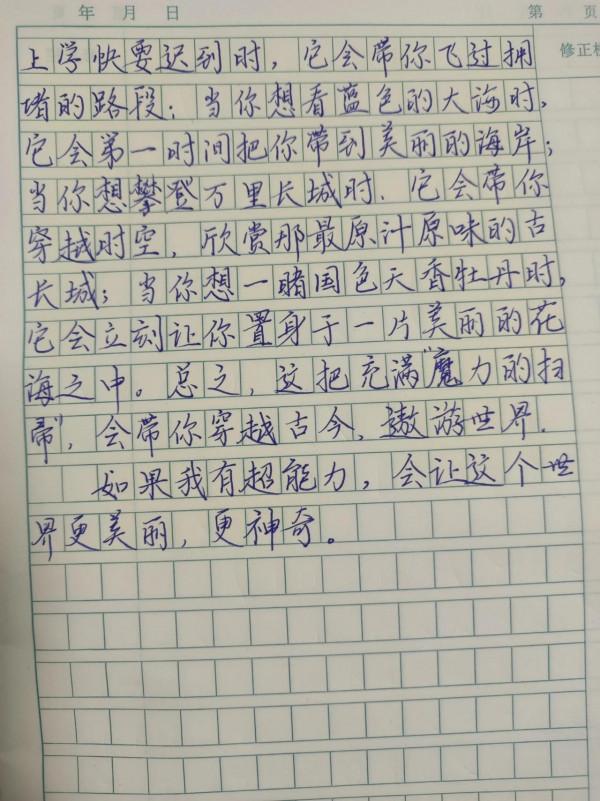 年 月 日 第 页
修正栏
上学快要迟到时，它会带你飞过拥
堵的路段；当你想看蓝色的大海时，
它会第一时间把你带到美丽的海岸；
当你想攀登万里长城时，它会带你
穿越时空，欣赏那最原汁原味的古
长城；当你想一睹国色天香牡丹时，
它会立刻让你置身于一片美丽的花
海之中。总之，这把充满“魔力的扫
帚”，会带你穿越古今，遨游世界.
如果我有超能力，会让这个世
界更美丽，更神奇。